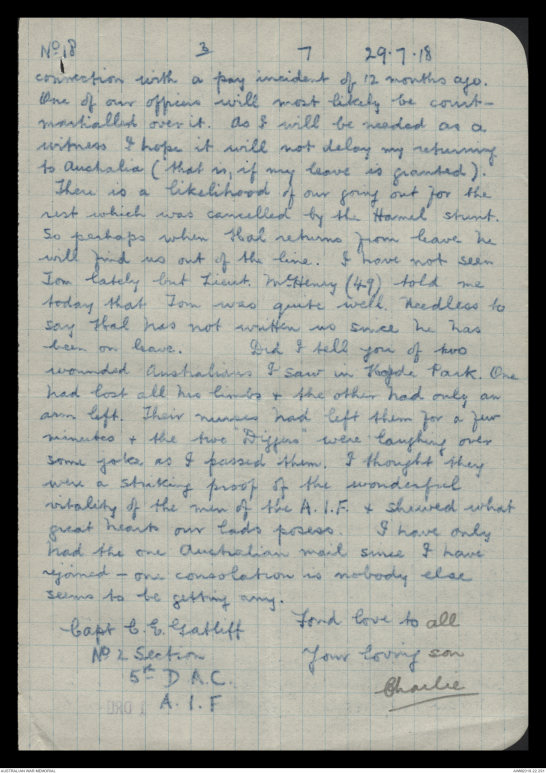 No 18 3 7 29.7.18
connection with a pay incident of 12 months ago.
One of our officers will most likely be court-
martialled over it. As I will be needed as a
witness I hope it will not delay my returning
to Australia (that is, if my leave is granted).
There is a likelihood of our going out for the
rest which was cancelled by the Hamel stunt.
So perhaps when Hal returns from leave he
will find us out of the line. I have not seen
Tom lately but Lieut. McHenry (49) told me
today that Tom was quite well. Needless to
say Hal has not written us since he has
been on leave. Did I tell you of two
wounded Australians I saw in Hyde Park. One
had lost all his limbs & the other had only an
arm left. Their nurses had left them for a few
minutes & the two "Diggers" were laughing over
some joke as I passed them. I thought they
were a striking proof of the wonderful
vitality of the men of the A.I.F. & shewed what
great hearts our lads posess. I have only
had the one Australian mail since I have
rejoined - one consolation is nobody else
seems to be getting any.
Fond love to all
Capt C.E. Gatliff Your loving son
No 2 Section Charlie
5th D A.C.
A.I.F
AUSTRALIAN WAR MEMORIAL